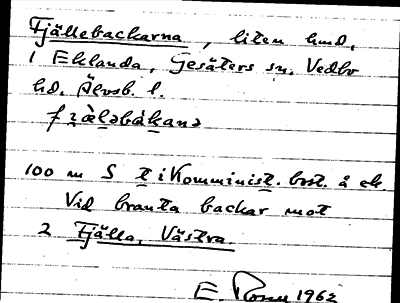 Fjällebackarna, liten lmd,
i Eklanda, Gesäters sn, Vedbo
hd, Älvsb. l.
fjæ̀ləbákana
100 m S t i Komminist. bost. å ek.
Vid branta backar mot
2 Fjälla, Västra.
E. 1962